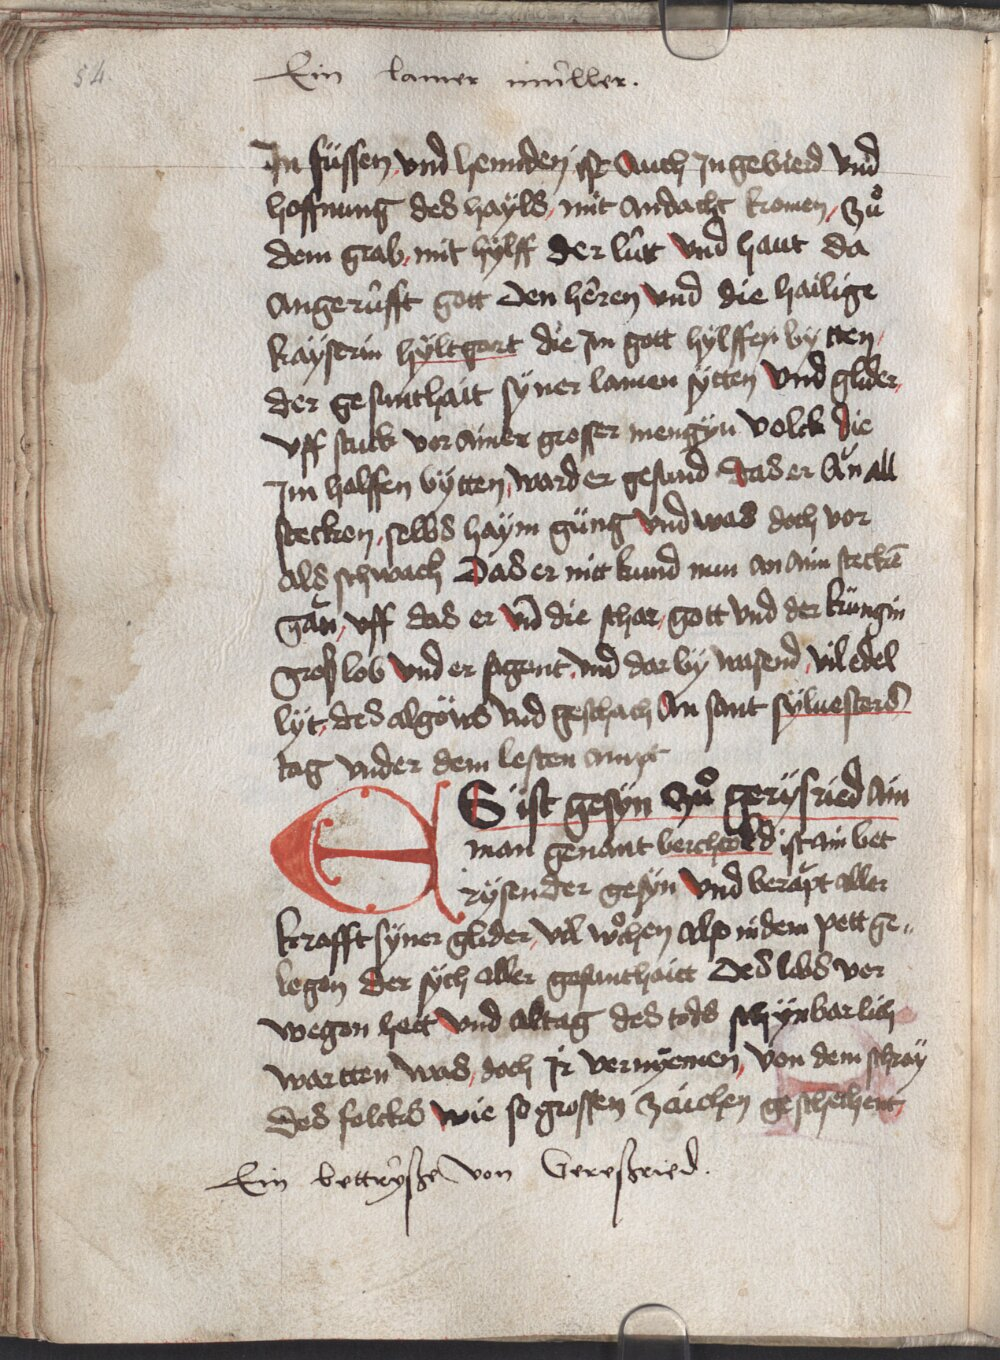 54.
Ein lamer müller.
In füssen vnd hennden ist auch In gebierd vnd
hoffnung des haÿls mit andacht komen, zů
dem grab, mit hÿlff der lüt vnd haut da
angerüfft gott den heren vnd die hailige
kaÿserin hÿltgart die Im gott hÿlffen bÿtten,
der gesunthait sÿner lamen sÿtten vnd glider,
vff stuck vor ainer grosser mengÿn volck die
Im halffen bÿtten, ward er gesund das er ăn all
stecken, selbs haÿm güng vnd was doch vor
als schwach das er nitt kund nun an aim steckē
găn, vff das er vn̄ die schar, gott vnd der küngin
groß lob vnd er sagent, vnd dar bÿ wasend, vil edel
lÿt, des algöws vnd geschach an sant sÿluesters
tag vnder dem lesten ampt
ES ist gesÿn zů gerÿsried ain
man genant berchtold ist ain bet
rÿsender gesÿn vnd berăpt aller
krafft sÿner glider, vil wochen also in dem pett ge„
legen der sÿch aller gesunthaitt des libs ver
wegen hett vnd altag des tods schÿnbarlich
wartten was, doch Ir vernÿemen, von dem schraÿ
des folcks wie so grossen zaichen geschechent,
Ein bettrÿße von Gereßried.